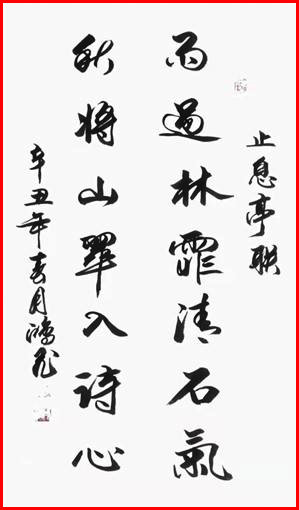 止息亭联
雨過林霏清石氣
秋將山翠入詩心
辛丑年春月鴻